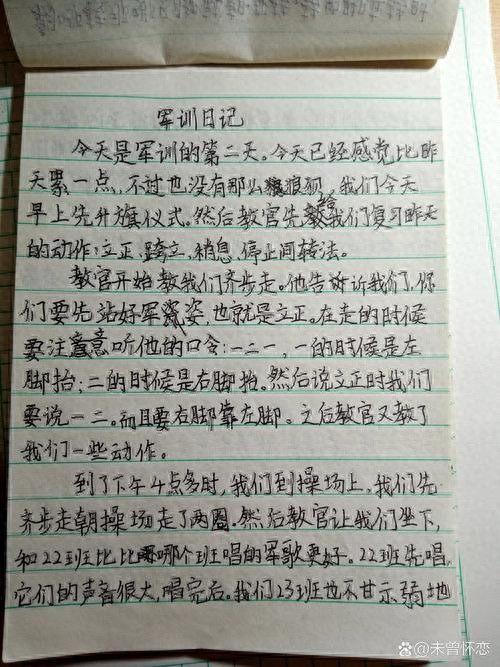 军训日记
今天是军训的第二天。今天已经感觉比昨
天累一点，不过也没有那么狼狈，我们今天
早上先升旗仪式。然后教官先给我们复习昨天
的动作：立正、跨立、稍息、停止间转法。
教官开始教我们齐步走。他告诉我们，你
们要先站好军姿，也就是立正。在走的时候
要注意听他的口令：一二一，一的时候是左
脚抬；二的时候是右脚抬。然后说立正时我们
要说一二。而且要右脚靠左脚。之后教官又教了
我们一些动作。
到了下午4点多时，我们到操场上，我们先
齐步走朝操场走了两圈。然后教官让我们坐下，
和22班比比哪个班唱的军歌更好。22班先唱，
它们的声音很大，唱完后。我们23班也不甘示弱地
@未曾怀恋